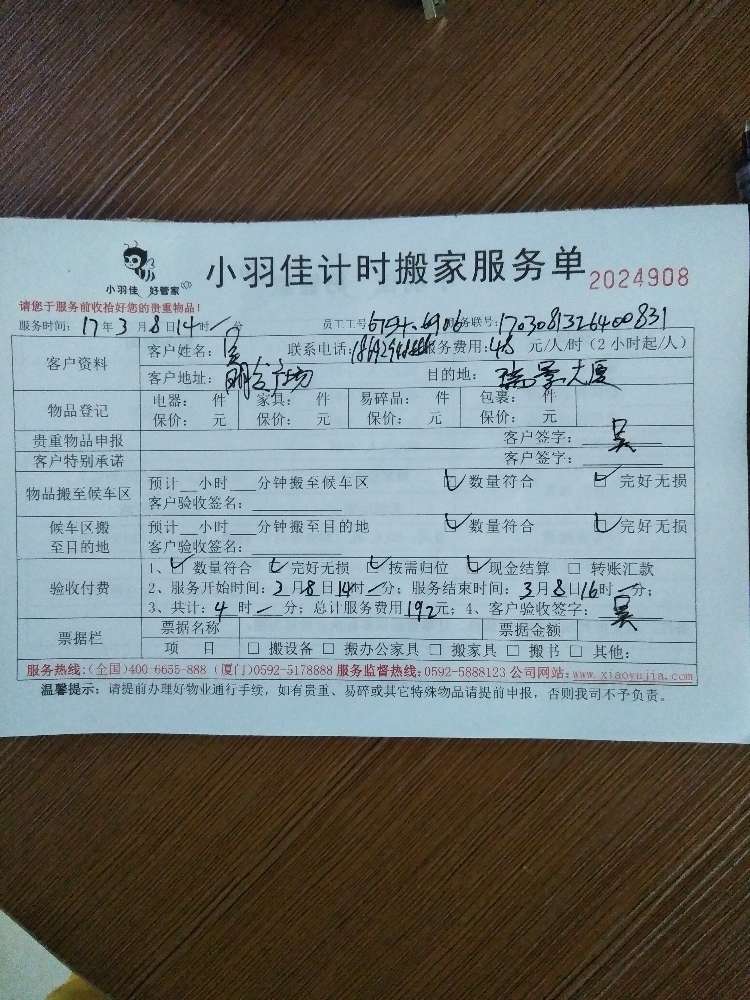 小羽佳 好管家
小羽佳计时搬家服务单 2024908
请您于服务前收拾好您的贵重物品!
服务时间: 17年3月8日14时一分 员工工号6754.6906 服务联号:170308132640831
客户资料 客户姓名: 联系电话: 服务费用:48 元/人/时(2小时起/人)
客户地址:明发广场 目的地: 瑞景大厦
物品登记 电器: 件 家具: 件 易碎品: 件 包裹: 件
保价: 元 保价: 元 保价: 元 保价: 元
贵重物品申报 客户签字: 吴
客户特别承诺 客户签字:
物品搬至候车区 预计__小时___分钟搬至候车区 ☑数量符合 ☑完好无损
客户验收签名:
候车区搬至目的地 预计__小时___分钟搬至目的地 ☑数量符合 ☑完好无损
客户验收签名:
验收付费 1、☑数量符合 ☑完好无损 ☑按需归位 ☑现金结算 □ 转账汇款
2、服务开始时间:3月8日14时一分; 服务结束时间:3月8日16时一分;
3、共计:4时一分; 总计服务费用192元; 4、客户验收签字: 吴
票据栏 票据名称 票据金额
项 目 □ 搬设备 □ 搬办公家具 □ 搬家具 □ 搬书 □ 其他:
服务热线:(全国)400 6655-888 (厦门)0592-5178888 服务监督热线:0592-5888123 公司网站:www.xiaoyujia.com
温馨提示: 请提前办理好物业通行手续, 如有贵重、易碎或其它特殊物品请提前申报, 否则我司不予负责。